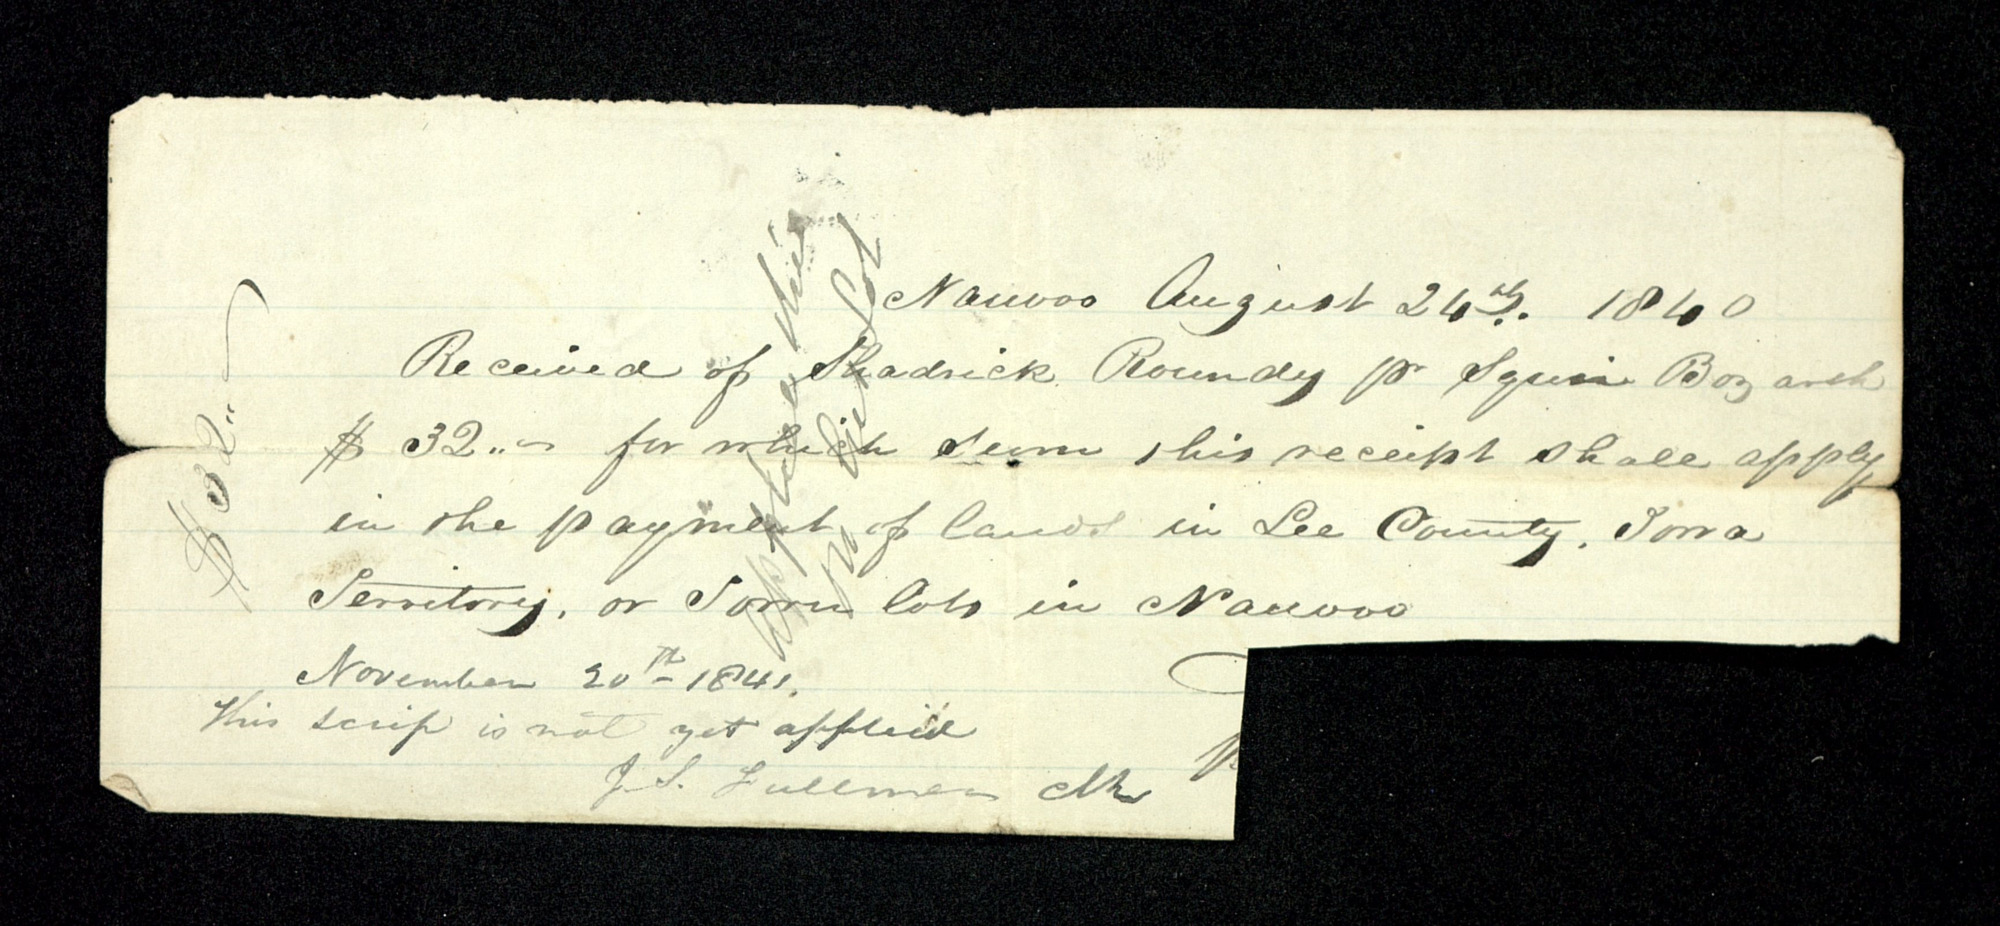 Nauvoo August 24th. 1840
Received of Shadrick Roundy pr Squire Bozarth
$ 32.. for which sum this receipt shall apply
in the payment of lands in Lee County, Iowa
Territory, or Town lots in Nauvoo
November 20th 1841.
this scrip is not yet applied
J. S. Fullmer clk
$ 32..
applied on